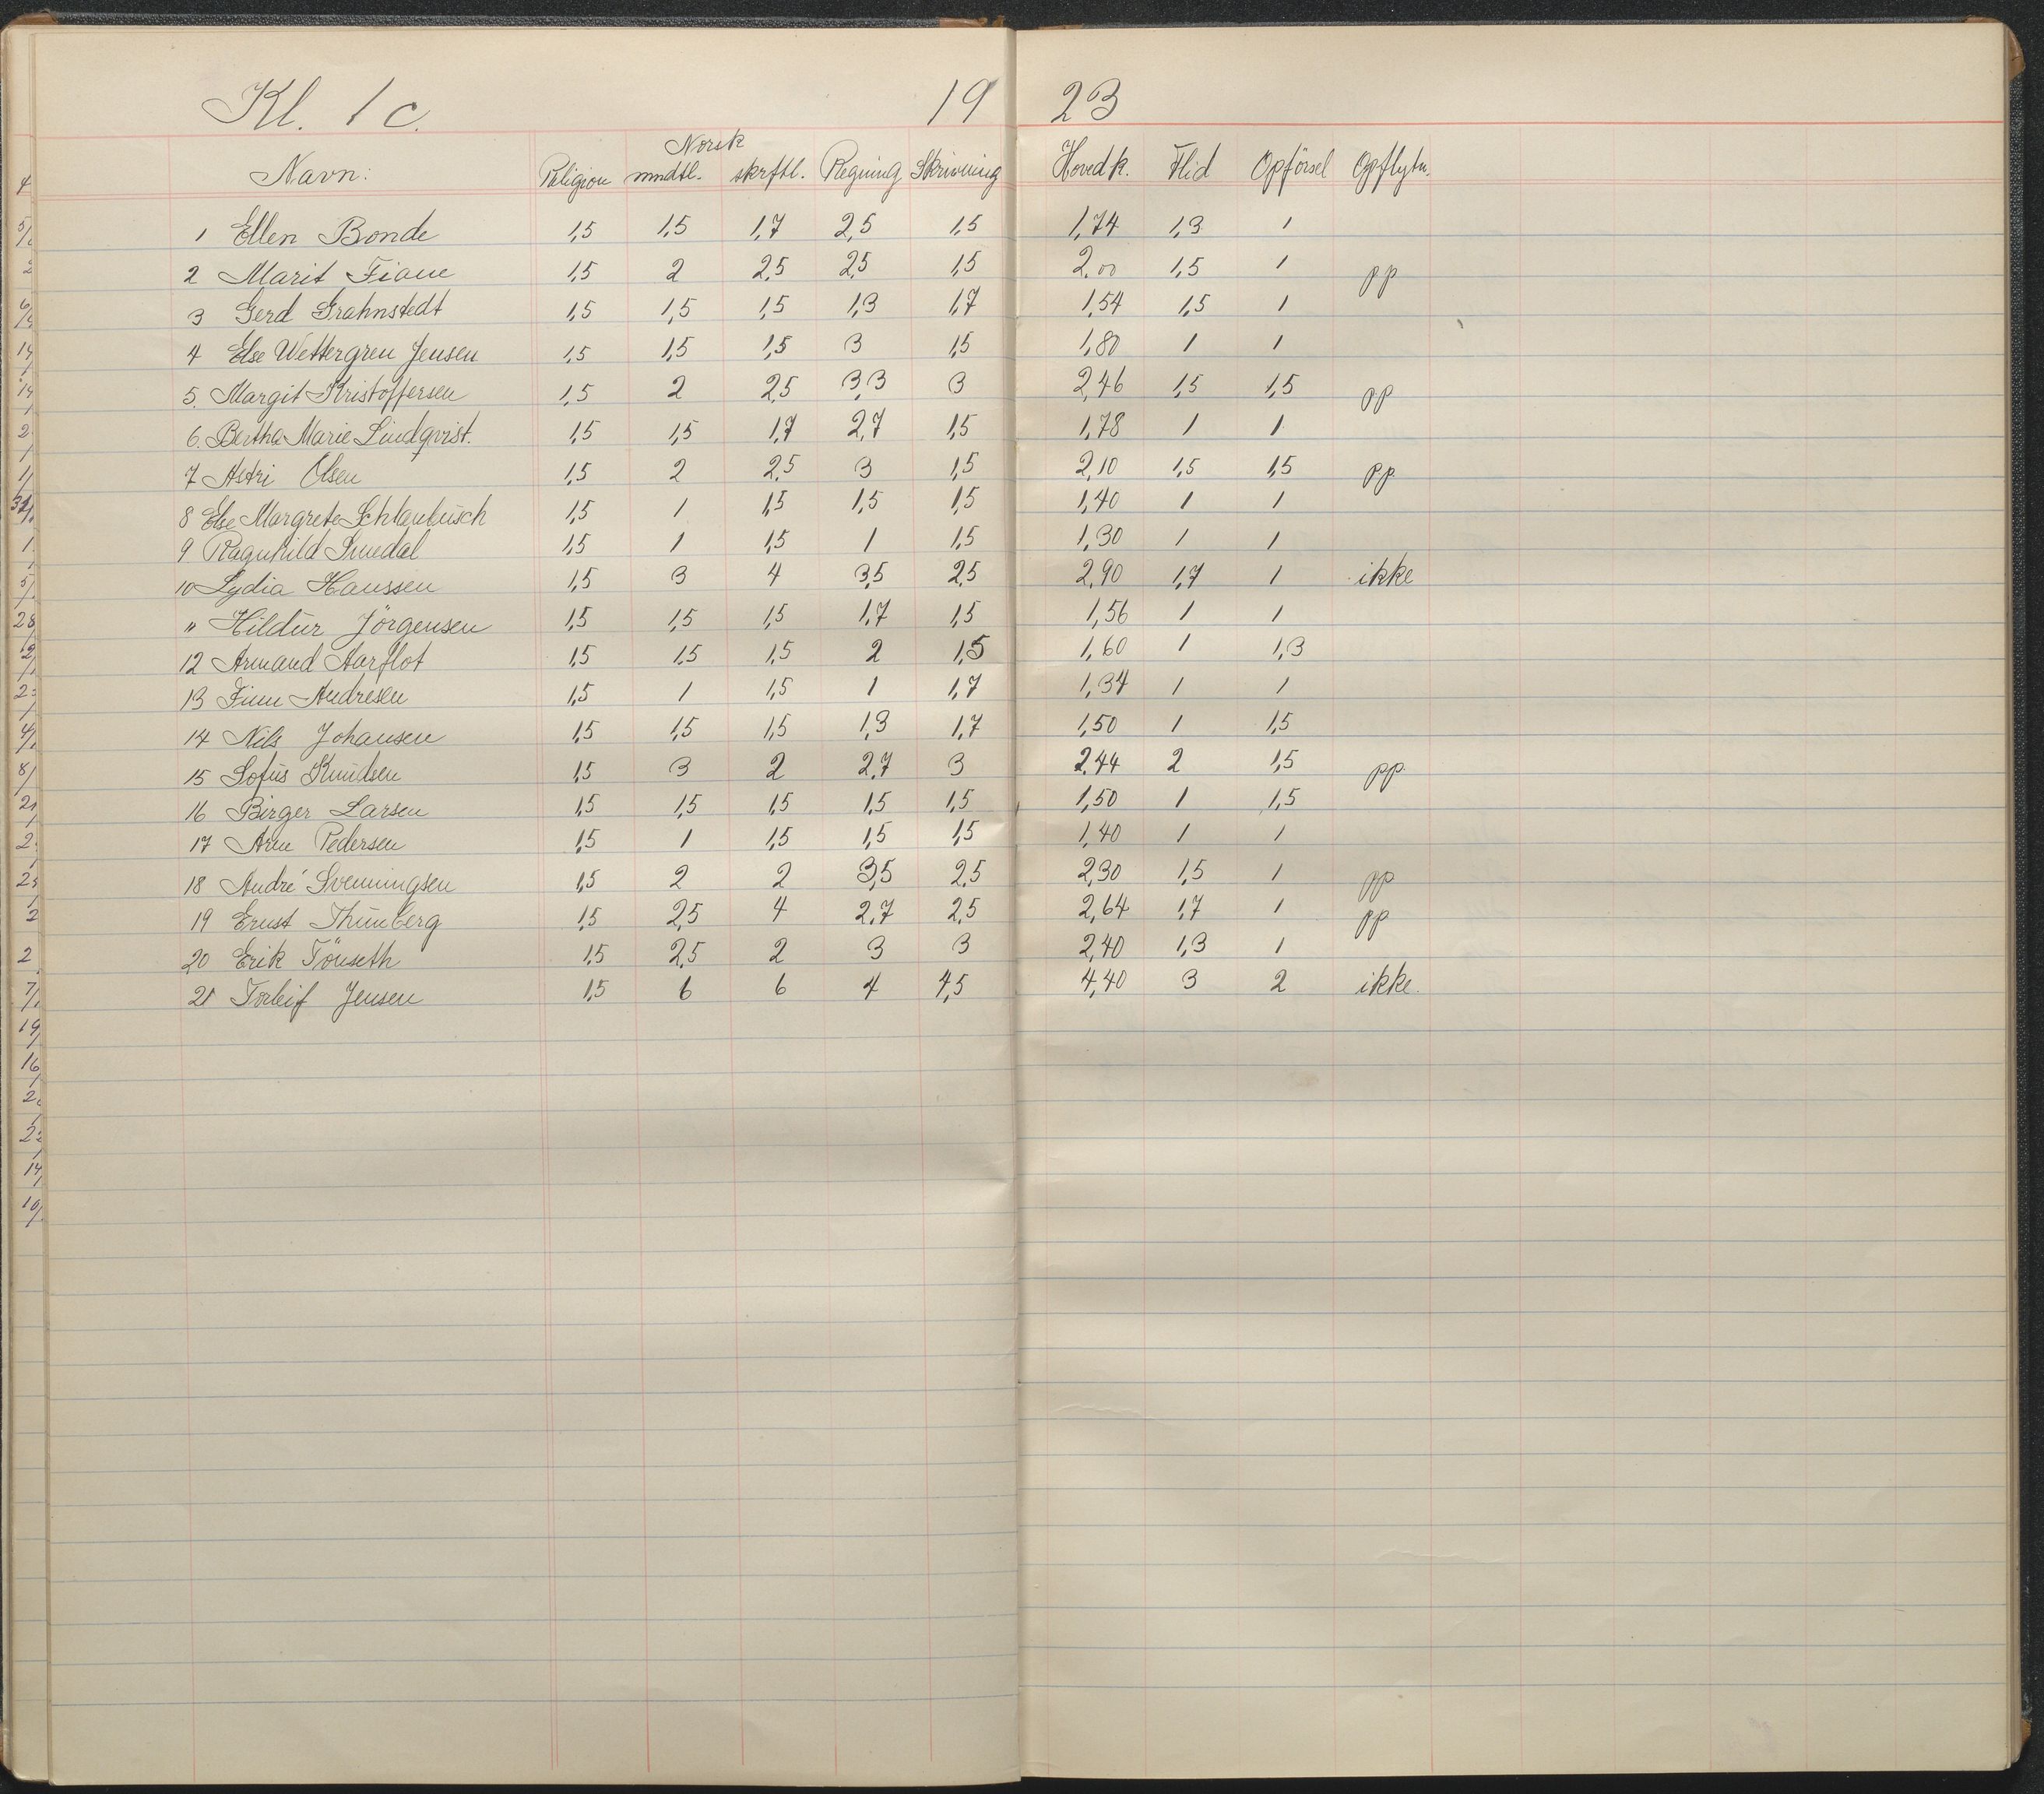 Kl. 1 c. 19 23
Norsk
Navn: Religion mndtl. skrftl. Regning Skrivning Hovedk. Flid Opförsel Opflytn.
1 Ellen Bonde 1,5 1,5 1,7 2,5 1,5 1,74 1,3 1
2 Marit Fiane 1,5 2 2,5 2,5 1,5 2,00 1,5 1 pp
3 Gerd Grahnstedt 1,5 1,5 1,5 1,3 1,7 1,54 1,5 1
4 Else Wettergren Jensen 1,5 1,5 1,5 3 1,5 1,80 1 1
5. Margit Kristoffersen 1,5 2 2,5 3,3 3 2,46 1,5 1,5 pp
6. Bertha Marie Lindqvist. 1,5 1,5 1,7 2,7 1,5 1,78 1 1
7 Astri Olsen 1,5 2 2,5 3 1,5 2,10 1,5 1,5 pp.
8 Else Margrete Schlanbusch 1,5 1 1,5 1,5 1,5 1,40 1 1
9 Ragnhild Smedal 1,5 1 1,5 1 1,5 1,30 1 1
10 Lydia Hanssen 1,5 3 4 3,5 2,5 2,90 1,7 1 ikke
11 Hildur Jörgensen 1,5 1,5 1,5 1,7 1,5 1,56 1 1
12 Armand Aarflot 1,5 1,5 1,5 2 1,5 1,60 1 1,3
13 Finn Andresen 1,5 1 1,5 1 1,7 1,34 1 1
14 Nils Johansen 1,5 1,5 1,5 1,3 1,7 1,50 1 1,5
15 Sofus Knudsen 1,5 3 2 2,7 3 2,44 2 1,5 pp.
16 Birger Larsen 1,5 1,5 1,5 1,5 1,5 1,50 1 1,5
17 Arne Pedersen 1,5 1 1,5 1,5 1,5 1,40 1 1
18 André Svenningsen 1,5 2 2 3,5 2,5 2,30 1,5 1 pp
19 Ernst Thunberg 1,5 2,5 4 2,7 2,5 2,64 1,7 1 pp
20 Erik Tönseth 1,5 2,5 2 3 3 2,40 1,3 1
21 Torleif Jensen 1,5 6 6 4 4,5 4,40 3 2 ikke.